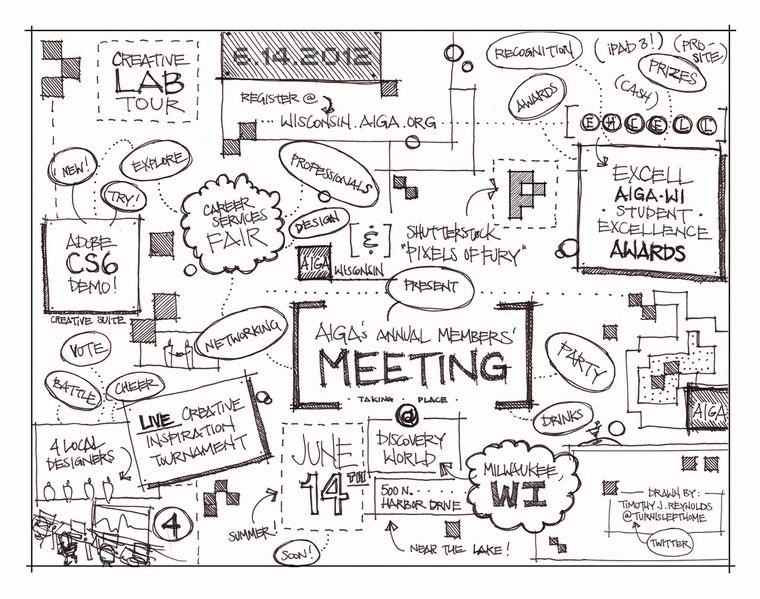 CREATIVE
LAB
TOUR
6.14.2012
REGISTER @
WISCONSIN.AIGA.ORG
RECOGNITION
(IPAD 3!)
(PRO-
SITE)
PRIZES
(CASH)
AWARDS
EXCELL
EXCELL
AIGA-WI
· STUDENT ·
EXCELLENCE
AWARDS
NEW!
EXPLORE
TRY!
ADOBE
CS6
DEMO!
CREATIVE SUITE
CAREER
SERVICES
FAIR
PROFESSIONALS
DESIGN
[&]
AIGA WISCONSIN
P
SHUTTERSTOCK
"PIXELS OF FURY"
PRESENT
NETWORKING
AIGA's ANNUAL MEMBERS'
MEETING
TAKING PLACE
@
PARTY
DRINKS
AIGA
VOTE
BATTLE
CHEER
LIVE CREATIVE
INSPIRATION
TOURNAMENT
4 LOCAL
DESIGNERS
4
JUNE
14TH
SUMMER
SOON!
DISCOVERY
WORLD
500 N.
HARBOR DRIVE
NEAR THE LAKE!
MILWAUKEE,
WI
DRAWN BY:
TIMOTHY J. REYNOLDS
@TURNISLEFTHOME
TWITTER